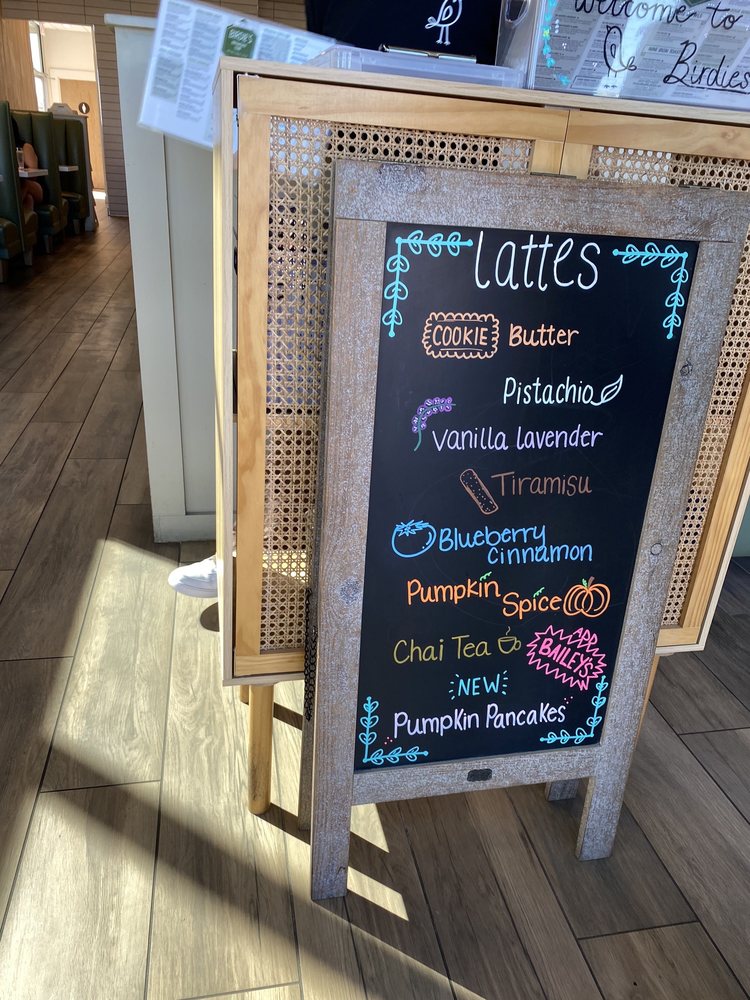 BIRDIE'S
Welcome to
Birdies
lattes
COOKIE Butter
Pistachio
Vanilla lavender
Tiramisu
Blueberry
cinnamon
Pumpkin
Spice
Chai Tea
ADD
BAILEYS
NEW
Pumpkin Pancakes